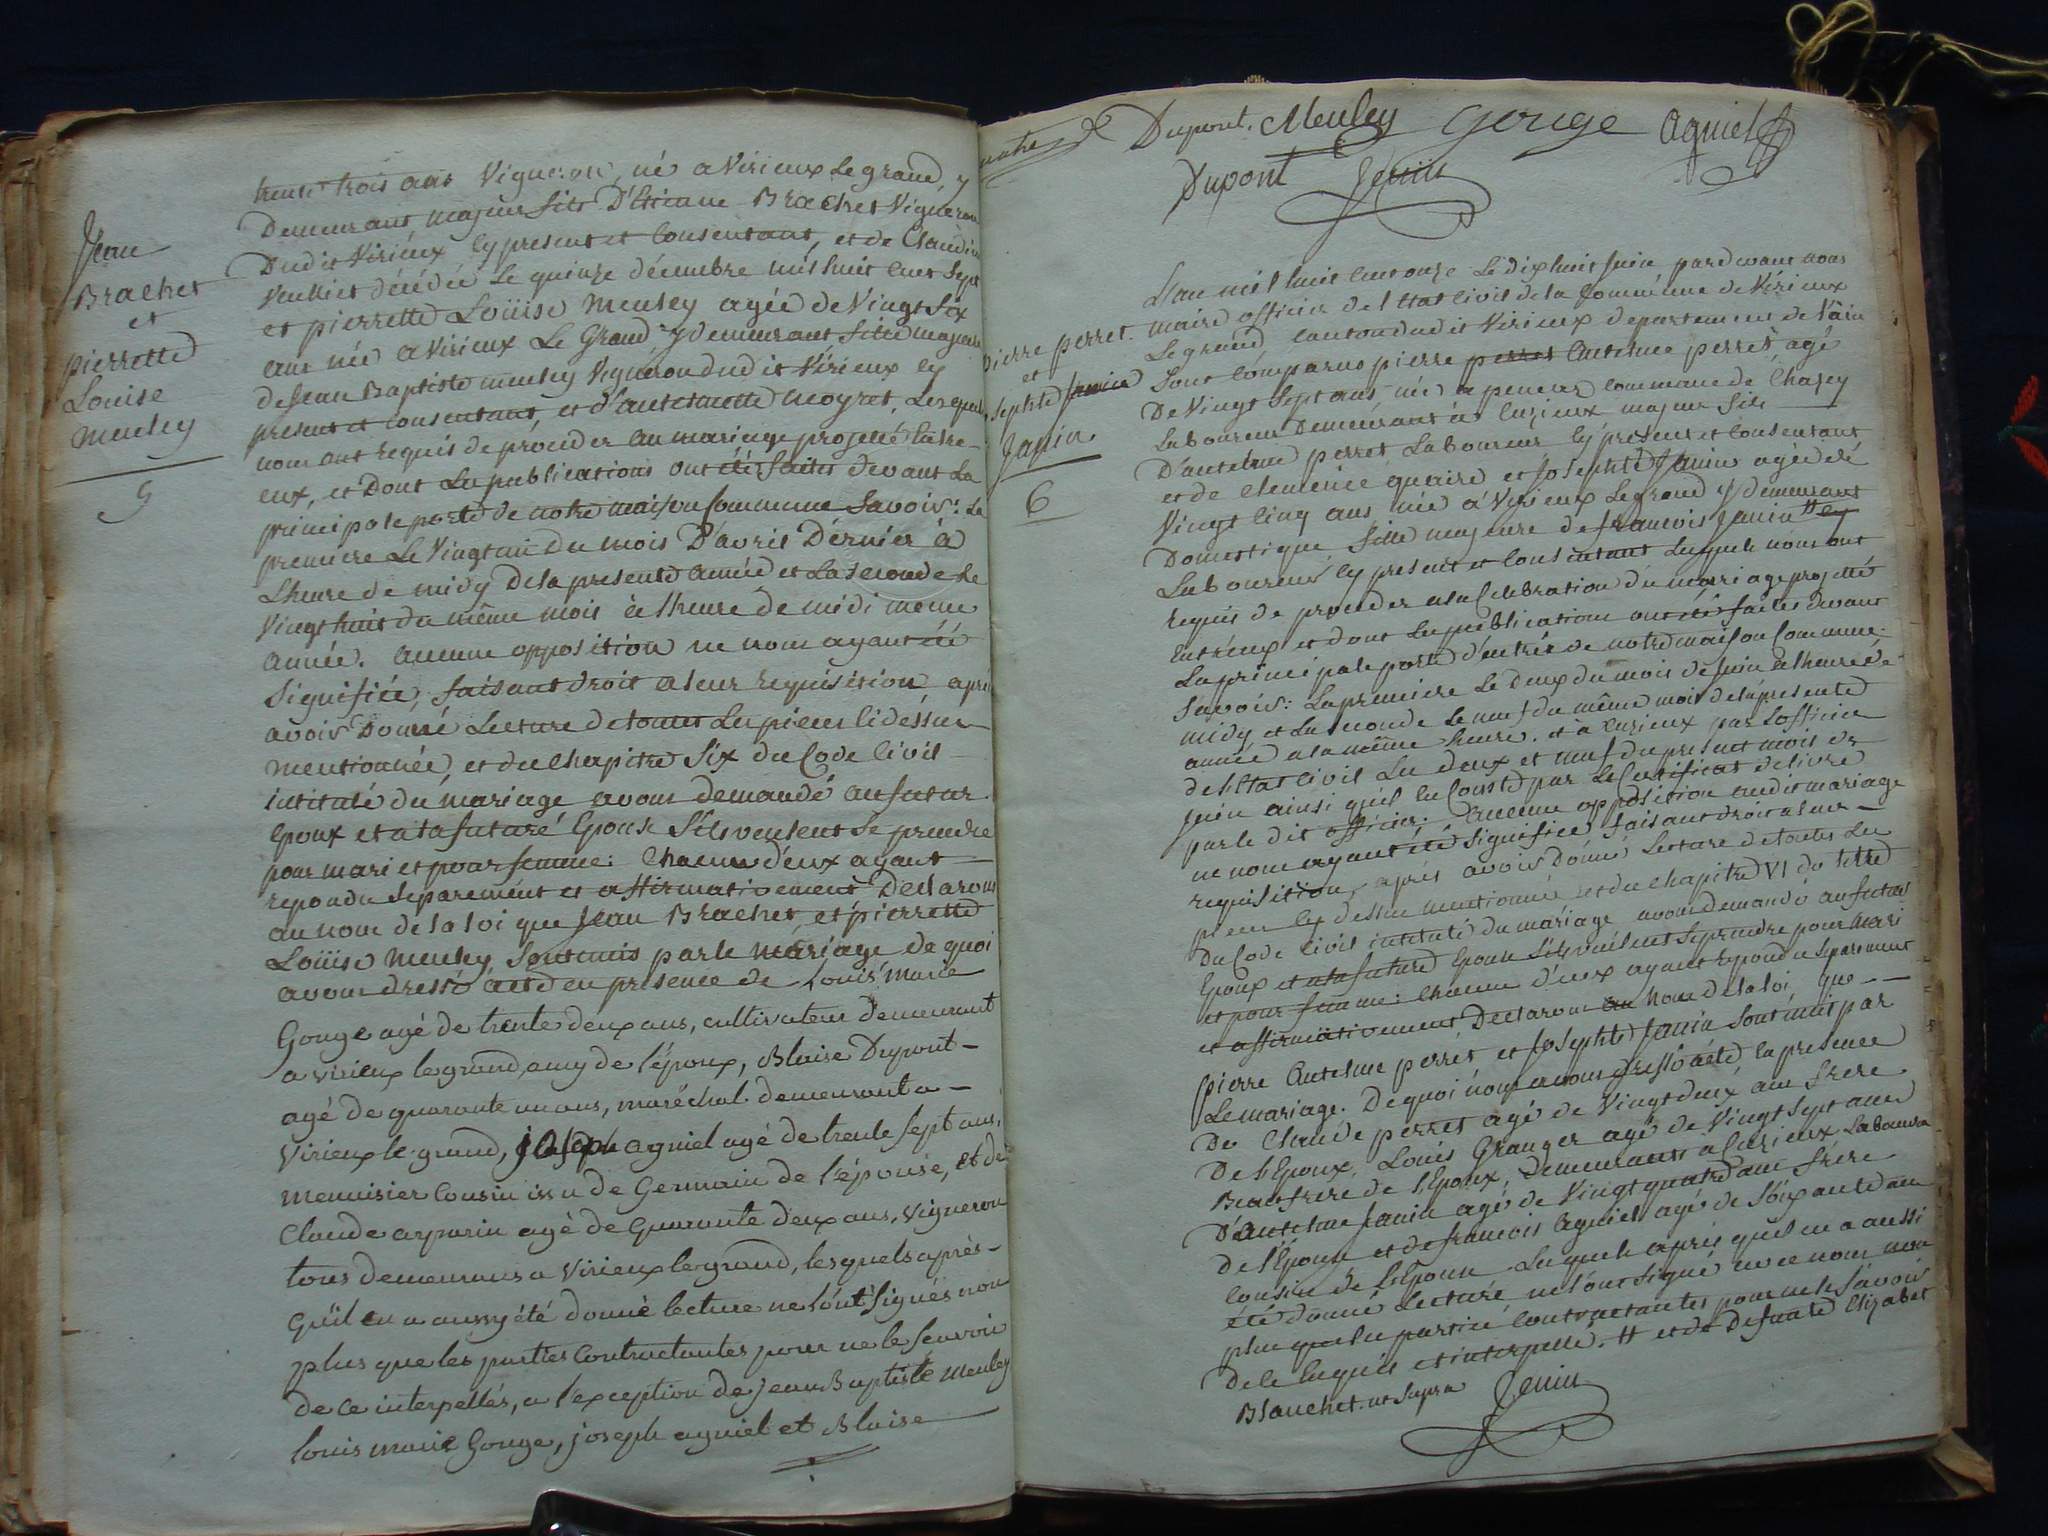 Jean
Brachet
et
pierrette
Louise
Meuley
5
trente trois ans Vigneron, né a Virieux Le grand, y
Demeurant, majeur fils D'Etienne Brachet Vigneron
Dudit Virieux Cy present et Consentant, et de Claudine
décédée Le quinze décembre mil huit cent sept
et pierrette Loüise Meuley agée de Vingt Six
ans née a Virieux Le Grand y demeurant fille majeure
de Jean Baptiste meuley Vigneron dudit Virieux Cy
present et Consentant, et d'antoinette moyret, Lesquels
nous ont requis de procéder au mariage projetté entre
eux, et Dont Les publications ont été faites devant La
principale porte de notre maison Commune Savoir: La
premiere Le Vingt un du mois D'avril Dernier à
Lheure de midy De la presente année et La seconde Le
Vingt huit du même mois à lheure de midi même
année. aucune opposition ne nous ayant été
Signifiée, faisant droit a leur requisition, après
avoir Donné Lecture de toutes Les pieces Cidessus
mentionnée, et du Chapitre Six du Code Civil
intitulé du mariage avons demandé au futur
Epoux et a la future Epouse S'ils veulent Se prendre
pour mari et pour femme: Chacun d'eux ayant
repondu Separement et affirmativement Declarons
au nom de la loi que Jean Brachet et pierrette
Loüise Meuley Sont unis par le mariage de quoi
avons dressé acte en presence de Louis Marie
Gouge agé de trente deux ans, cultivateur demeurant
a virieux le grand, amy de l'époux, Blaise Dupont
agé de quarante un ans, maréchal demeurant a
Virieux le grand, joseph agniel agé de trente sept ans,
menuisier Cousin issu de Germain de l'épouse, et de
Claude arparin agé de quarante deux ans, vigneron
tous demeurans a Virieux legrand, lesquels après
qu'il en a aussy été donné lecture ne l'ont Signés non
plus que les parties Contractantes pour ne le Scavoir
de ce interpellés, a l'exception de jean Baptiste Meuley
louis marie Gouge, joseph agniel et Blaise
Dupont. Meuley Gouge Agniel
Dupont Jenin
pierre perret
et
Josephte Janin
Janin
6
L'an mil huit Cent onze Le dix huit Juin pardevant nous
maire officier de l'Etat Civil de la Commune de Virieux
Le grand, Canton dudit Virieux departement de l'ain
Sont Comparus pierre perret Antelme perret, agé
De Vingt Sept ans, né a peneux Commune de Chazey
Laboureur Demeurant à Cuzieux majeur fils
D'antelme perret Laboureur Cy present et Consentant
et de Clemence quaire et Josephte Janin agée de
Vingt Cinq ans née a Virieux Le grand y demeurant
Domestique fille majeure de francois Janin # Cy
Laboureur Cy present et Consentant Lesquels nous ont
requis de procéder a la Celebration du mariage projetté
Entr'eux et dont Les publications ont été faites devant
La principale porte d'entrée de notre maison Commune
Savoir: La premiere Le deux du mois de Juin à lheure de
midy et La seconde Le neuf du même mois de la presente
année a la même heure. et à Cuzieux par L'officier
de l'Etat Civil Les deux et neuf du present mois de
Juin ainsi qu'il En Conste par Le Certificat delivré
par le dit officier. aucune opposition audit mariage
ne nous ayant été Signifiée faisant droit a leur
requisition, après avoir Donné Lecture de toutes Les
pieces Cy dessus mentionnée et du Chapitre VI du titre
Du Code Civil intitulé du mariage avons demandé au futur
Epoux et a la future Epouse S'ils veulent Se prendre pour Mari
et pour femme: Chacun d'eux ayant repondu Separement
et affirmativement, Declarons au Nom de la loi, que
Pierre Antelme perret et Josephte Janin Sont unis par
Le mariage. De quoi nous avons dressé acte En presence
De Claude perret agé de Vingt deux ans frere
De l'Epoux, Louis Granger agé de Vingt Sept ans
Beaufrere de l'Epoux, Demeurants à Cuzieux Laboureurs
D'Antelme Janin agé de Vingt quatre ans frère
de l'Epouse et de francois Agniel agé de Soixante ans
Cousin de l'Epouse Lesquels après qu'il en a aussi
été donné Lecture n'ont Signé avec nous non
plus que les parties Contractantes pour ne le Savoir
De ce Enquis et interpellé. # et de Defunte Elizabet
Blanchet. ut Supra Jenin